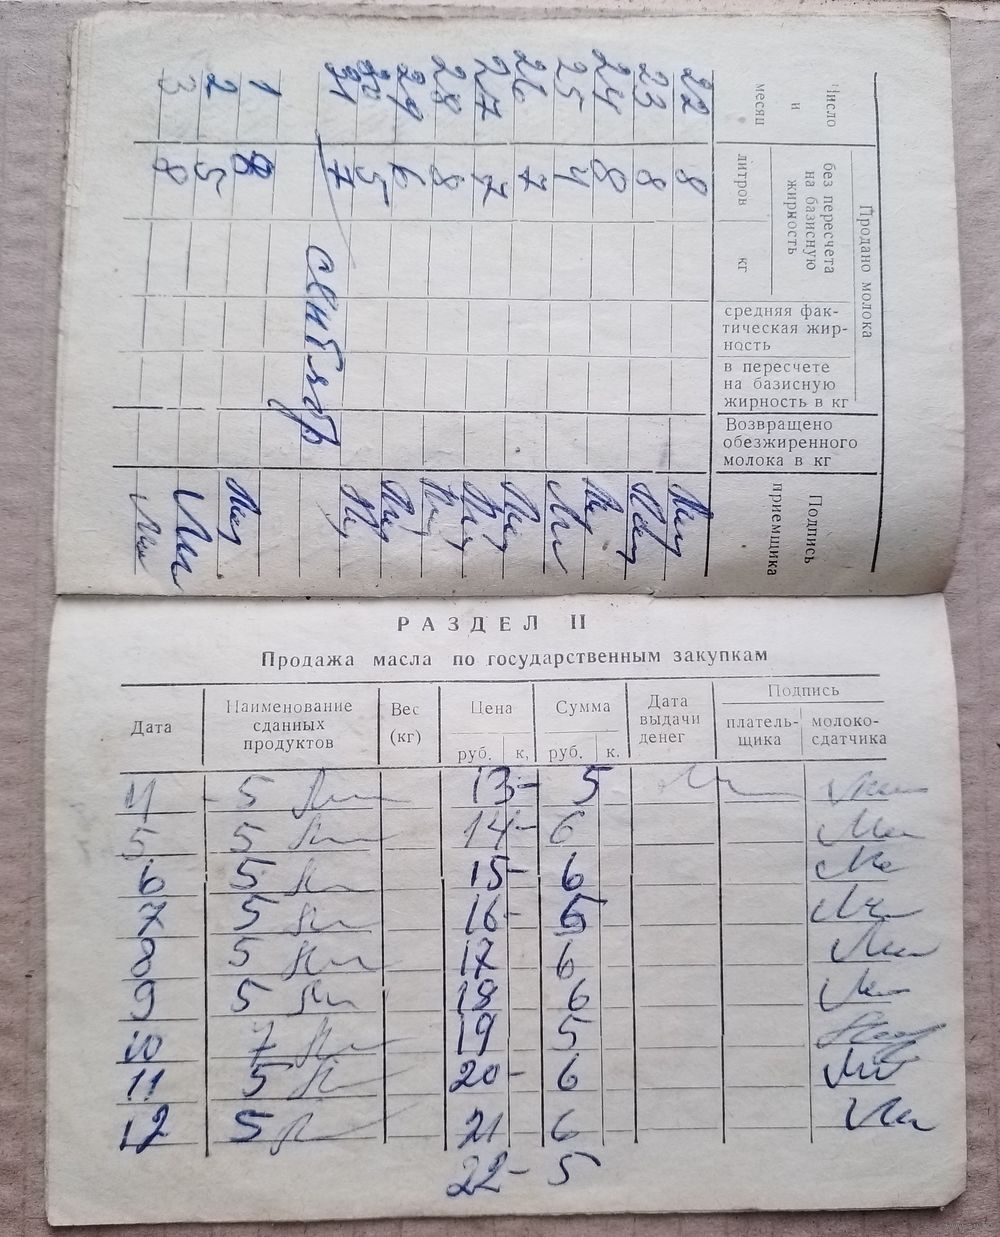 Число и месяц
Продано молока
без пересчета на базисную жирность
литров
кг
средняя фак-
тическая жир-
ность
в пересчете
на базисную
жирность в кг
Возвращено
обезжиренного
молока в кг
Подпись приемщика
22 8
23 8
24 8
25 4
26 7
27 7
28 8
29 6
30 5
31 7
сентябрь
1 8
2 5
3 8
РАЗДЕЛ II
Продажа масла по государственным закупкам
Дата
Наименование
сданных
продуктов
Вес
(кг)
Цена
руб. к.
Сумма
руб. к.
Дата
выдачи
денег
Подпись
платель-
щика
молоко-
сдатчика
4 - 5 13- 5
5 5 14- 6
6 5 15- 6
7 5 16- 5
8 5 17 6
9 5 18 6
10 7 19 5
11 5 20- 6
12 5 21 6
22- 5